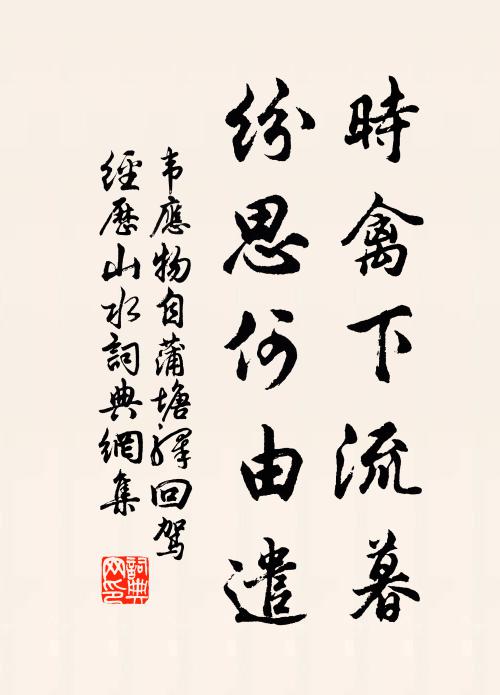 時禽下流暮
紛思何由遣
韦應物自蒲塘驛回駕
經歷山水詞典網集
詞典网印